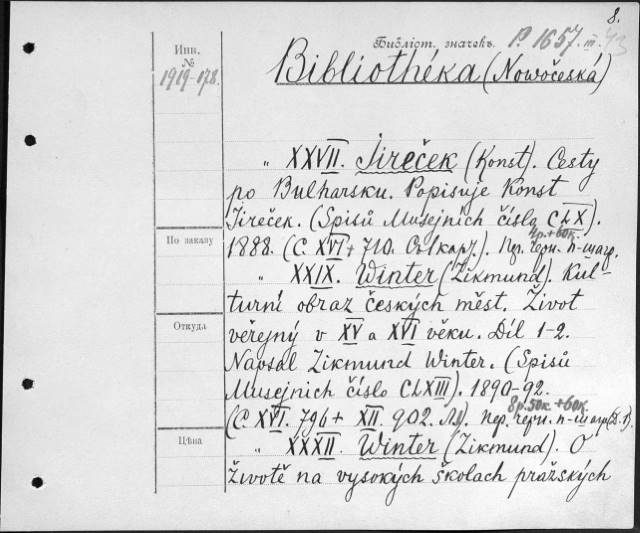 8.
Инв.
№
1919-178.
Библіот. значекъ. P. 1657. III. 43
Bibliothéka (Nowočeská)
„ XXVII. Jireček (Konst). Cesty
po Bulharsku. Popisuje Konst
Jireček. (Spisů Musejních číslo CLX).
4р.+60к.
1888. (С. XVI + 710. Съ 1 карт.). Пер. черн. п-шагр.
По заказу
„ XXIX. Winter (Zikmund). Kul-
turní obraz českých měst. Život
Откуда
veřejný v XV a XVI věku. Díl 1-2.
Napsal Zikmund Winter. (Spisů
Musejních číslo CLXIII). 1890-92.
8р.50к.+60к.
(С. XVI. 796 + XII. 902. Пер. черн. п-шагр
Цѣна
„ XXXII. Winter (Zikmund). O
životě na vysokých školach pražských